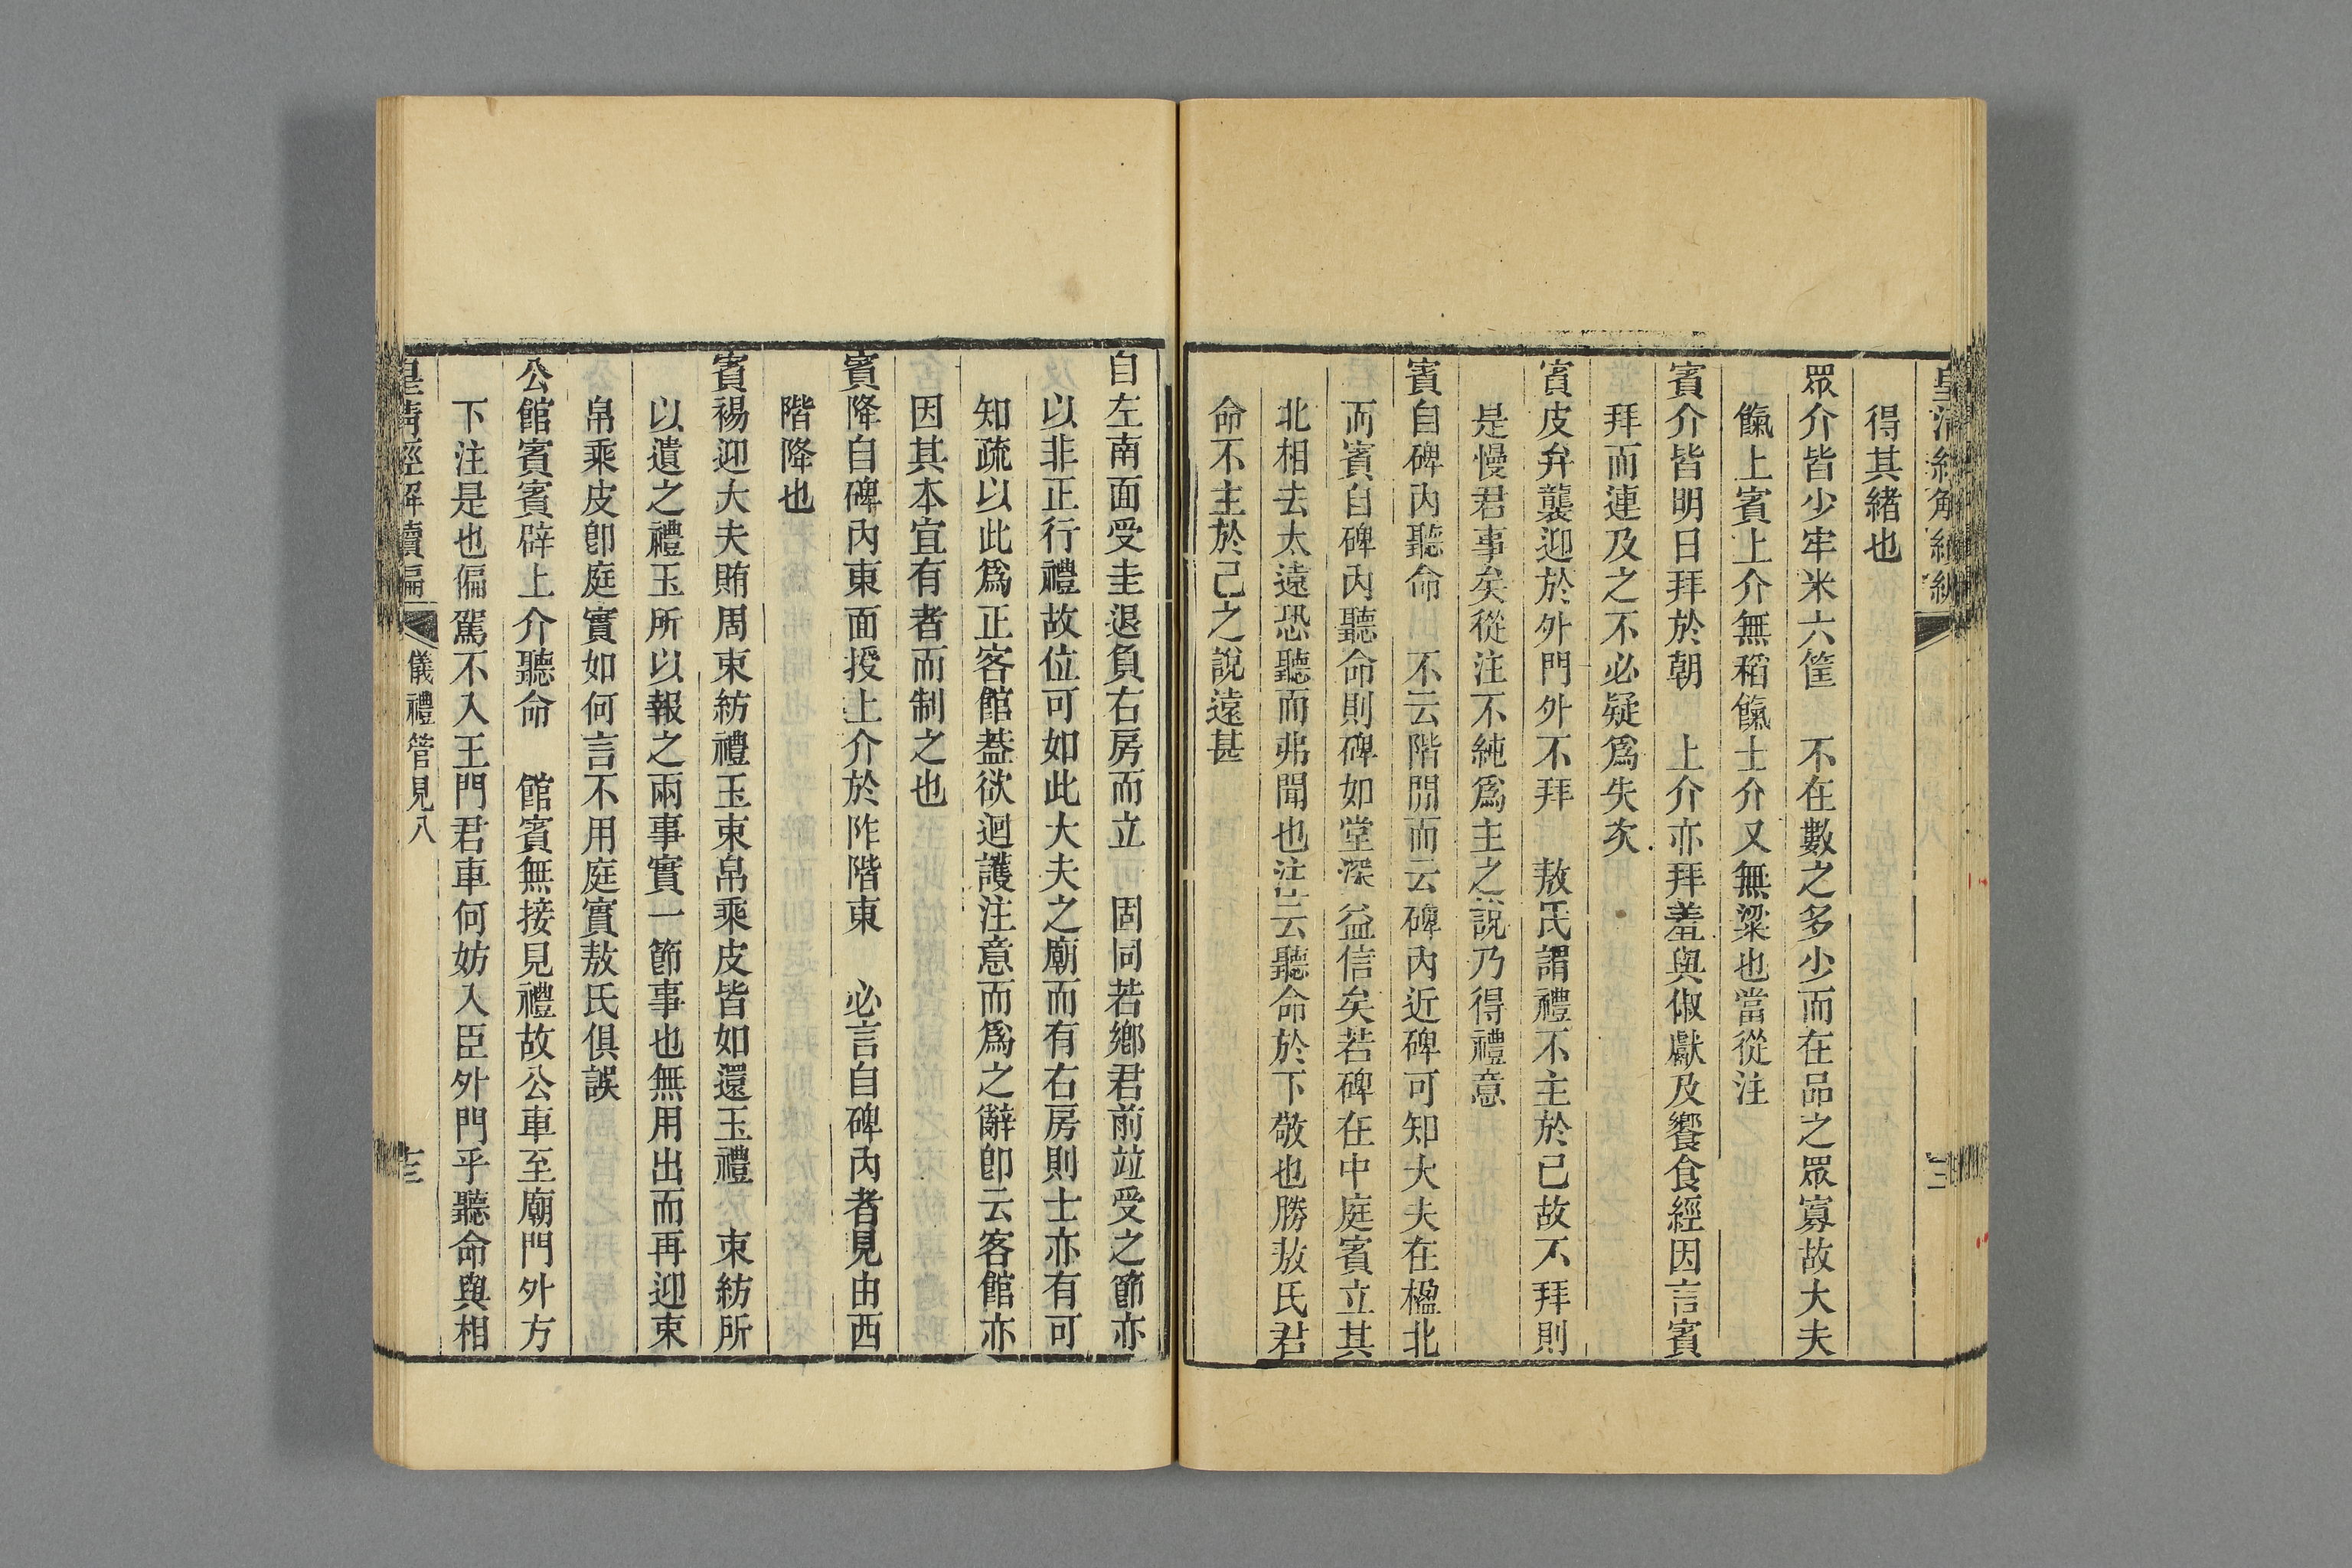 得其緒也
眾介皆少牢米六筐　不在數之多少而在品之眾寡故大夫
餼上賓上介無稻餼士介又無粱也當從注
賓介皆明日拜於朝　上介亦拜羞與俶獻及饗食經因言賓
拜而連及之不必疑爲失次
賓皮弁襲迎於外門外不拜　敖氏謂禮不主於已故不拜則
是慢君事矣從注不純爲主之說乃得禮意
賓自碑內聽命　不云階閒而云碑內近碑可知大夫在楹北
而賓自碑內聽命則碑如堂深益信矣若碑在中庭賓立其
北相去太遠恐聽而弗聞也注云聽命於下敬也勝敖氏君
命不主於己之說遠甚
自左南面受圭退負右房而立　固同若鄉君前竝受之節亦
以非正行禮故位可如此大夫之廟而有右房則士亦有可
知疏以此爲正客館葢欲迴護注意而爲之辭卽云客館亦
因其本宜有者而制之也
賓降自碑內東面授上介於阼階東　必言自碑內者見由西
階降也
賓裼迎大夫賄周束紡禮玉束帛乘皮皆如還玉禮　束紡所
以遺之禮玉所以報之兩事實一節事也無用出而再迎束
帛乘皮卽庭實如何言不用庭實敖氏俱誤
公館賓賓辟上介聽命　館賓無接見禮故公車至廟門外方
下注是也偏駕不入王門君車何妨入臣外門乎聽命與相
皇清經解續編
儀禮管見八